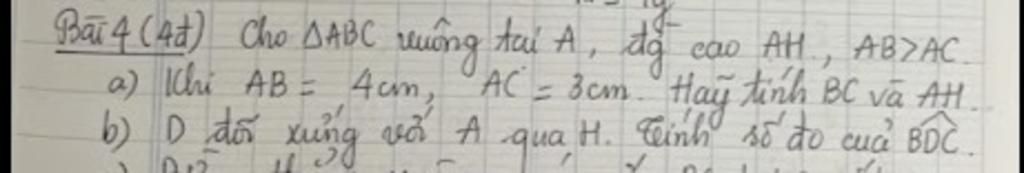 Bài 4 (4đ) Cho ΔABC vuông tại A, đg cao AH, AB>AC.
a) Khi AB = 4cm, AC = 3cm. Hãy tính BC và AH.
b) D đối xứng với A qua H. Tính số đo của BDC.